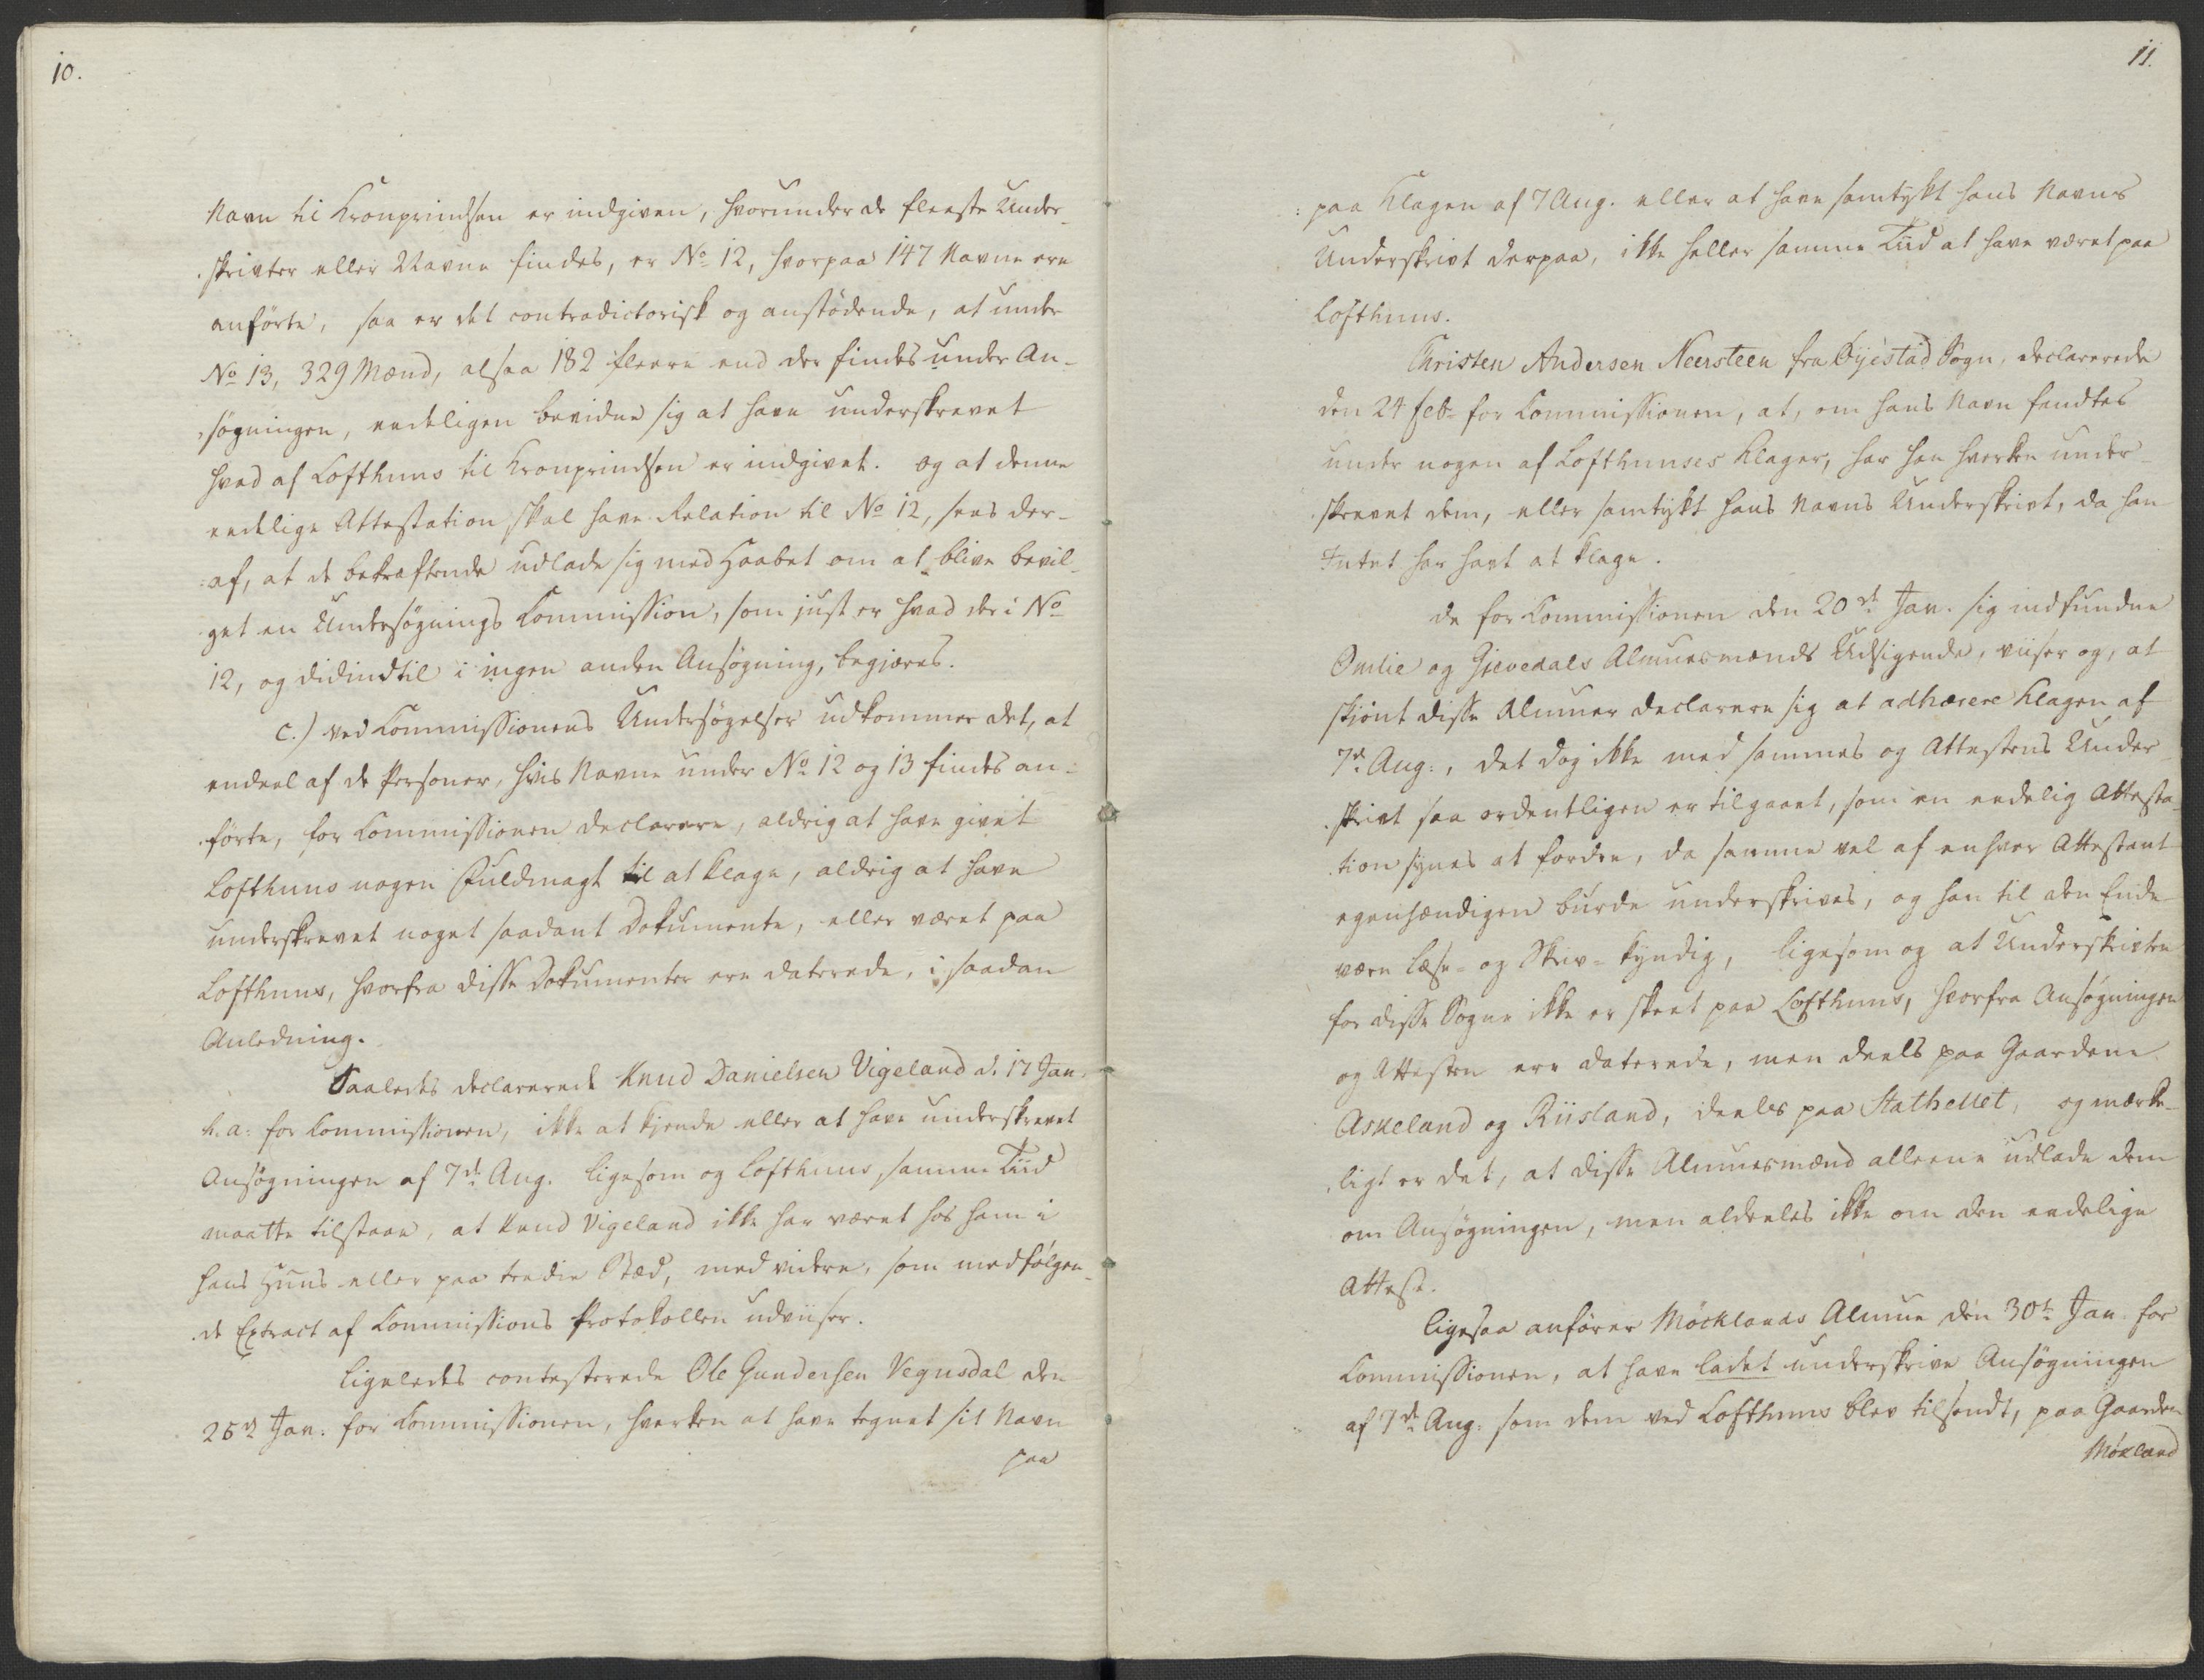 10.
Navn til Kronprindsen er indgiven, hvorunder de fleeste Under-
skrivter eller Navne findes, er No 12, hvorpaa 147 Navne ere
anførte, saa er det contradictorisk og anstødende, at under
No 13, 329 Mænd, altsaa 182 fleere end der findes under An-
søgningen, eedeligen bevidne sig at have underskrevet
hvad af Lofthuus til Kronprindsen er indgivet. Og at denne
eedelige Attestation skal have Relation til No 12, sees der-
af, at de bekræftende udlade sig med Haabet om at blive bevil-
get en Undersøgnings Commission, som just er hvad der i No
12, og didindtil i ingen anden Ansøgning, begjæres.
c.) Ved Commissionens Undersøgelser udkommer det, at
endeel af de Personer, hvis Navne under No 12 og 13 findes an-
førte, for Commissionen declarere, aldrig at have givet
Lofthuus nogen Fuldmagt til at klage, aldrig at have
underskrevet noget saadant Dokumente, eller været paa
Lofthuus, hvorfra disse Dokumenter ere daterede, i saadan
Anledning.
Saaledes declarerede Knud Danielsen Vigeland d. 17 Jan.
h. a: for Commissionen, ikke at kjende eller at have underskrevet
Ansøgningen af 7de Aug. ligesom og Lofthuus samme Tiid
maatte tilstaae, at Knud Vigeland ikke har været hos ham i
hans Huus eller paa tredie Stæd, med videre, som medfølgen-
de Extract af Commissions Protokollen udviiser.
Ligeledes contesterede Ole Gundersen Vegusdal den
26de Jan. for Commissionen, hverken at have tegnet sit Navn
paa
11.
paa Klagen af 7 Aug. eller at have samtykt hans Navns
Underskrivt derpaa, ikke heller samme Tiid at have været paa
Lofthuus.
Christen Andersen Neersteen fra Øyestad Sogn, declarerede
den 24 Feb. for Commissionen, at, om hans Navn fandtes
under nogen af Lofthuuses Klager, har han hverken under-
skrevet dem, eller samtykt hans Navns Underskrivt, da han
Intet har havt at klage.
De for Commissionen den 20de Jan. sig indfundne
Omlie og Gjevedals Almuesmænds Udsigende, viiser og, at
skjønt disse Almuer declarere sig at adhærere Klagen af
7de Aug., det dog ikke med sammes og Attestens Under-
skrivt saa ordentligen er tilgaaet, som en eedelig Attesta-
tion synes at fordre, da samme vel af enhver Attestant
egenhændigen burde underskrives, og han til den Ende
være Læse- og Skriv- kyndig, ligesom og at Underskrivten
for disse Sogne ikke er skeet paa Lofthuus, hvorfra Ansøgningen
og Attesten ere daterede, men deels paa Gaardene
Askeland og Riisland, deeles paa Stathellet, og mærke-
ligt er det, at disse Almuesmænd alleene udlade dem
om Ansøgningen, men aldeeles ikke om den eedelige
Attest.
Ligesaa anfører Møcklands Almue den 30te Jan. for
Commissionen, at have ladet underskrive Ansøgningen
af 7de Aug. som dem ved Lofthuus blev tilsendt, paa Gaarden
Møkland